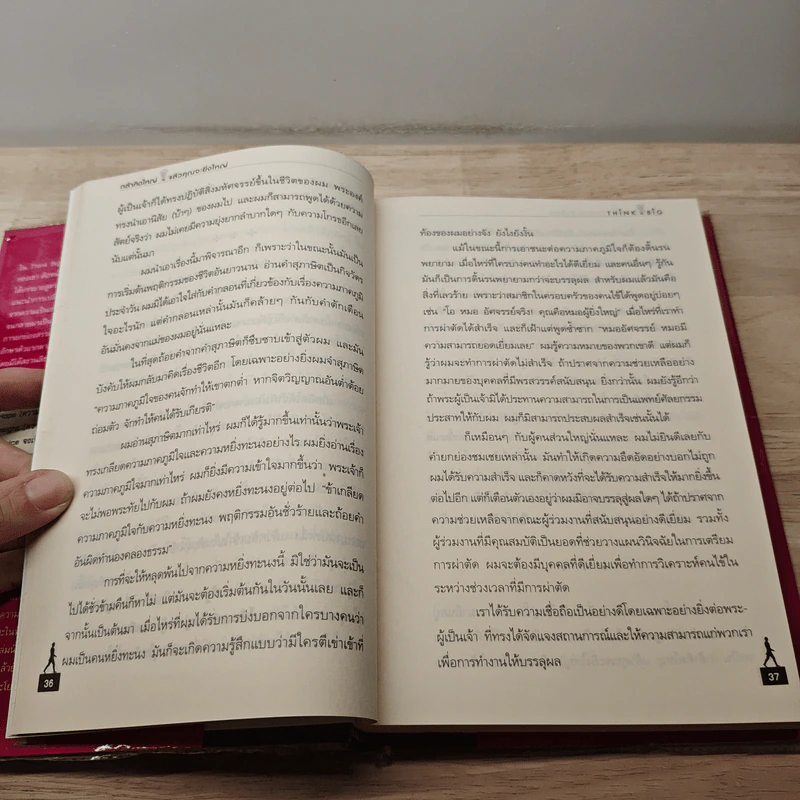 กล้าคิดใหญ่ แล้วคุณจะยิ่งใหญ่
ผู้เป็นเจ้าก็ได้ทรงปฏิบัติสิ่งมหัศจรรย์ขึ้นในชีวิตของผม พระองค์
ทรงนำเอานิสัย (บ้าๆ) ของผมไป และผมก็สามารถพูดได้ด้วยความ
สัตย์จริงว่า ผมไม่เคยมีความยุ่งยากลำบากใดๆ กับความโกรธอีกเลย
นับแต่นั้นมา
ผมนำเอาเรื่องนี้มาพิจารณาอีก ก็เพราะว่าในขณะนั้นมันเป็น
การเริ่มต้นพฤติกรรมของชีวิตอันยาวนาน อ่านคำสุภาษิตเป็นกิจวัตร
ประจำวัน ผมมิได้เอาใจใส่กับคำกลอนที่เกี่ยวข้องกับเรื่องความภาคภูมิ
ใจอะไรนัก แต่คำกลอนเหล่านั้นมันก็คล้ายๆ กันกับคำตักเตือน
อันมั่นคงจากแม่ของผมอยู่นั่นแหละ
ในที่สุดถ้อยคำจากคำสุภาษิตก็ซึบซาบเข้าสู่ตัวผม และ
บังคับให้ผมกลับมาคิดเรื่องชีวิตอีก โดยเฉพาะอย่างยิ่งผมจำสุภาษิต
"ความภาคภูมิใจของคนจักทำให้เขาตกต่ำ หากจิตวิญญาณอันต่ำต้อย
ถ่อมตัว จักทำให้คนได้รับเกียรติ"
ผมอ่านสุภาษิตมากเท่าไหร่ ผมก็ได้รู้มากขึ้นเท่านั้นว่าพระเจ้า
ทรงเกลียดความภาคภูมิใจและความหยิ่งทะนงอย่างไร ผมยิ่งอ่านเรื่อง
ความภาคภูมิใจมากเท่าไหร่ ผมก็ยิ่งมีความเข้าใจมากขึ้นว่า พระเจ้าก็
จะไม่พอพระทัยไปกับผม ถ้าผมยังคงหยิ่งทะนงอยู่ต่อไป "ข้าเกลียด
ความภาคภูมิใจกับความหยิ่งทะนง พฤติกรรมอันชั่วร้ายและถ้อยคำ
อันผิดทำนองคลองธรรม"
การที่จะให้หลุดพ้นไปจากความหยิ่งทะนงนี้ มิใช่ว่ามันจะเป็น
ไปได้ชั่วข้ามคืนก็หาไม่ แต่มันจะต้องเริ่มต้นกันในวันนั้นเลย และก็
จากนั้นเป็นต้นมา เมื่อไหร่ที่ผมได้รับการบ่งบอกจากใครบางคนว่า
ผมเป็นคนหยิ่งทะนง มันก็จะเกิดความรู้สึกแบบว่ามีใครตีเข่าเข้าที่
36
THINK BIG
ท้องของผมอย่างจัง ยังไงยังงั้น
แม้ในขณะนี้การเอาชนะต่อความภาคภูมิใจก็ต้องดิ้นรน
พยายาม เมื่อไหร่ที่ใครบางคนทำอะไรได้ดีเยี่ยม และคนอื่นๆ รู้กัน
มันก็เป็นการดิ้นรนพยายามกว่าจะบรรลุผล สำหรับผมแล้วมันคือ
สิ่งที่เลวร้าย เพราะว่าสมาชิกในครอบครัวของคนไข้ได้พูดอยู่บ่อยๆ
เช่น "โอ หมอ อัศจรรย์จริง! คุณคือหมอผู้ยิ่งใหญ่" เมื่อไหร่ที่เราทำ
การผ่าตัดได้สำเร็จ และก็เฝ้าแต่พูดซ้ำซาก "หมออัศจรรย์ หมอมี
ความสามารถยอดเยี่ยมเลย" ผมรู้ความหมายของพวกเขาดี แต่ผมก็
รู้ว่าผมจะทำการผ่าตัดไม่สำเร็จ ถ้าปราศจากความช่วยเหลืออย่าง
มากมายของบุคคลที่มีพรสวรรค์สนับสนุน ยิ่งกว่านั้น ผมยังรู้อีกว่า
ถ้าพระผู้เป็นเจ้ามิได้ประทานความสามารถในการเป็นแพทย์ศัลยกรรม
ประสาทให้กับผม ผมก็มิสามารถประสบผลสำเร็จเช่นนั้นได้
ก็เหมือนๆ กับผู้คนส่วนใหญ่นั่นแหละ ผมไม่ยินดีเลยกับ
คำยกย่องชมเชยเหล่านั้น มันทำให้เกิดความอึดอัดอย่างบอกไม่ถูก
ผมได้รับความสำเร็จ และก็คาดหวังที่จะได้รับความสำเร็จให้มากยิ่งขึ้น
ต่อไปอีก แต่ก็เตือนตัวเองอยู่ว่าผมมิอาจบรรลุสู่ผลใดๆ ได้ถ้าปราศจาก
ความช่วยเหลือจากคณะผู้ร่วมงานที่สนับสนุนอย่างดีเยี่ยม รวมทั้ง
ผู้ร่วมงานที่มีคุณสมบัติเป็นยอดที่ช่วยวางแผนวินิจฉัยในการเตรียม
การผ่าตัด ผมจะต้องมีบุคคลที่ดีเยี่ยมเพื่อทำการวิเคราะห์คนไข้ใน
ระหว่างช่วงเวลาที่มีการผ่าตัด
เราได้รับความเชื่อถือเป็นอย่างดีโดยเฉพาะอย่างยิ่งต่อพระ-
ผู้เป็นเจ้า ที่ทรงได้จัดแจงสถานการณ์และให้ความสามารถแก่พวกเรา
เพื่อการทำงานให้บรรลุผล
37